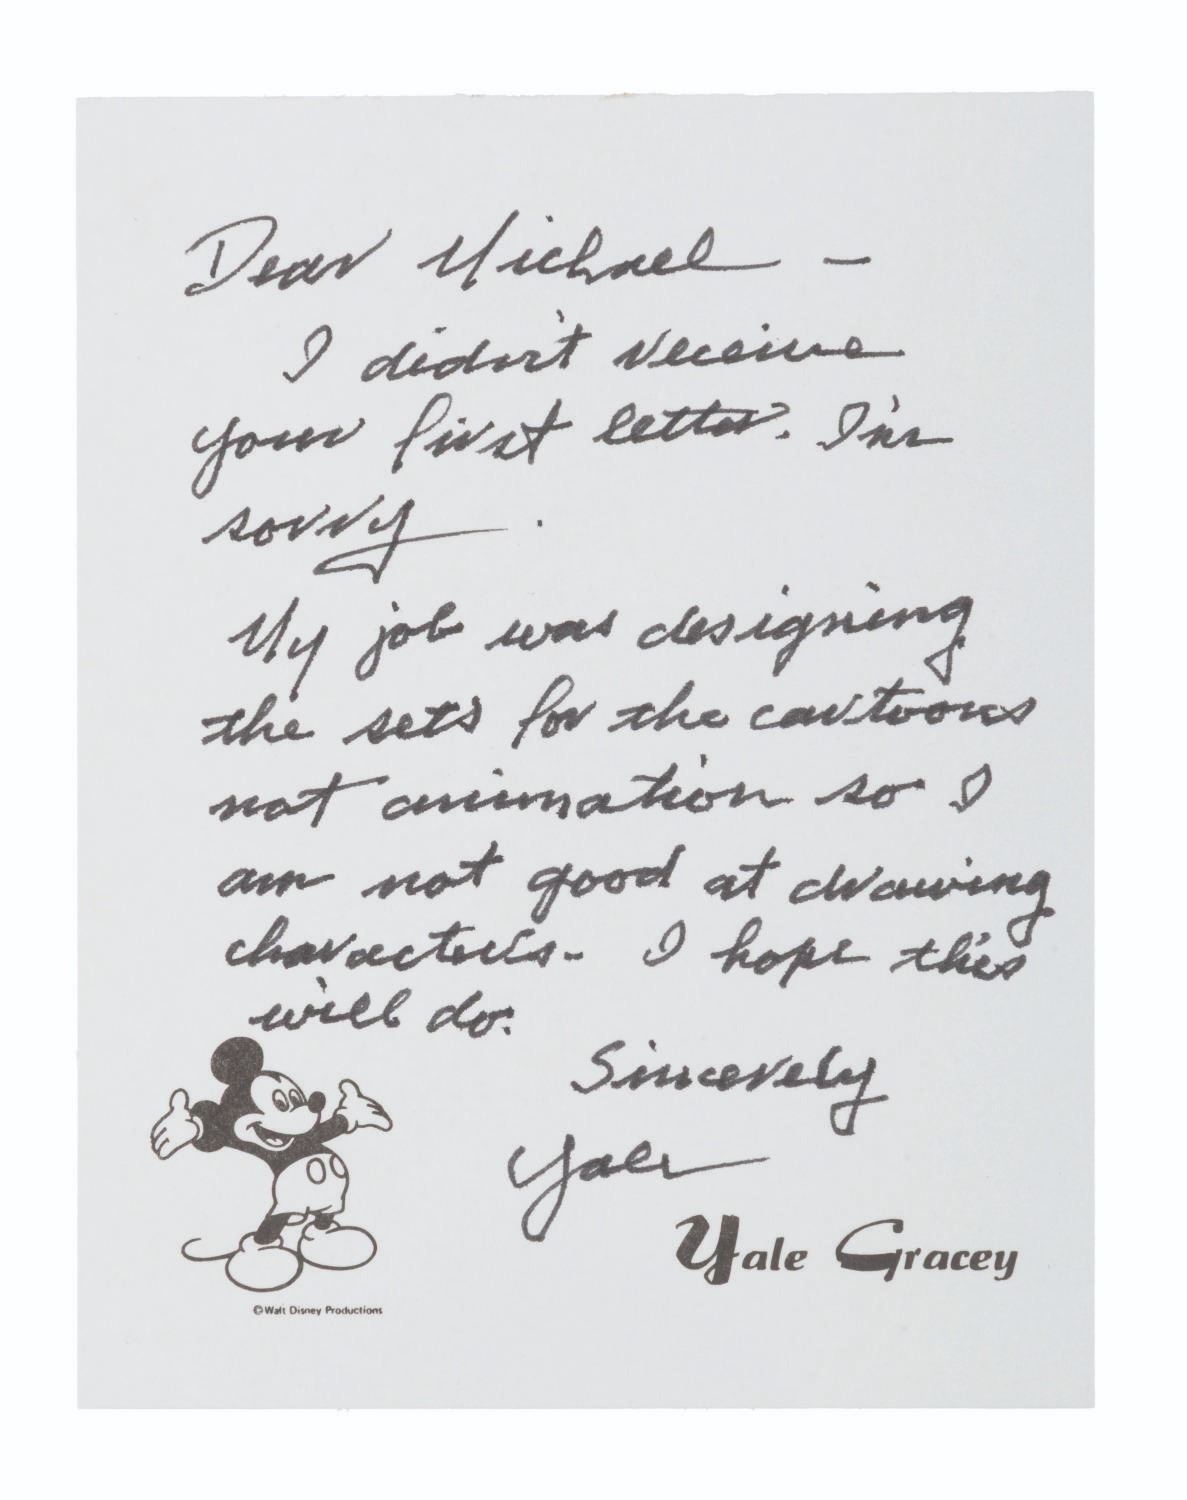 Dear Michael —
I didn't receive
your first letter. I'm
sorry.
My job was designing
the sets for the cartoons
not animation so I
am not good at drawing
characters- I hope this
will do.
Sincerely
Yale
Yale Gracey
©Walt Disney Productions